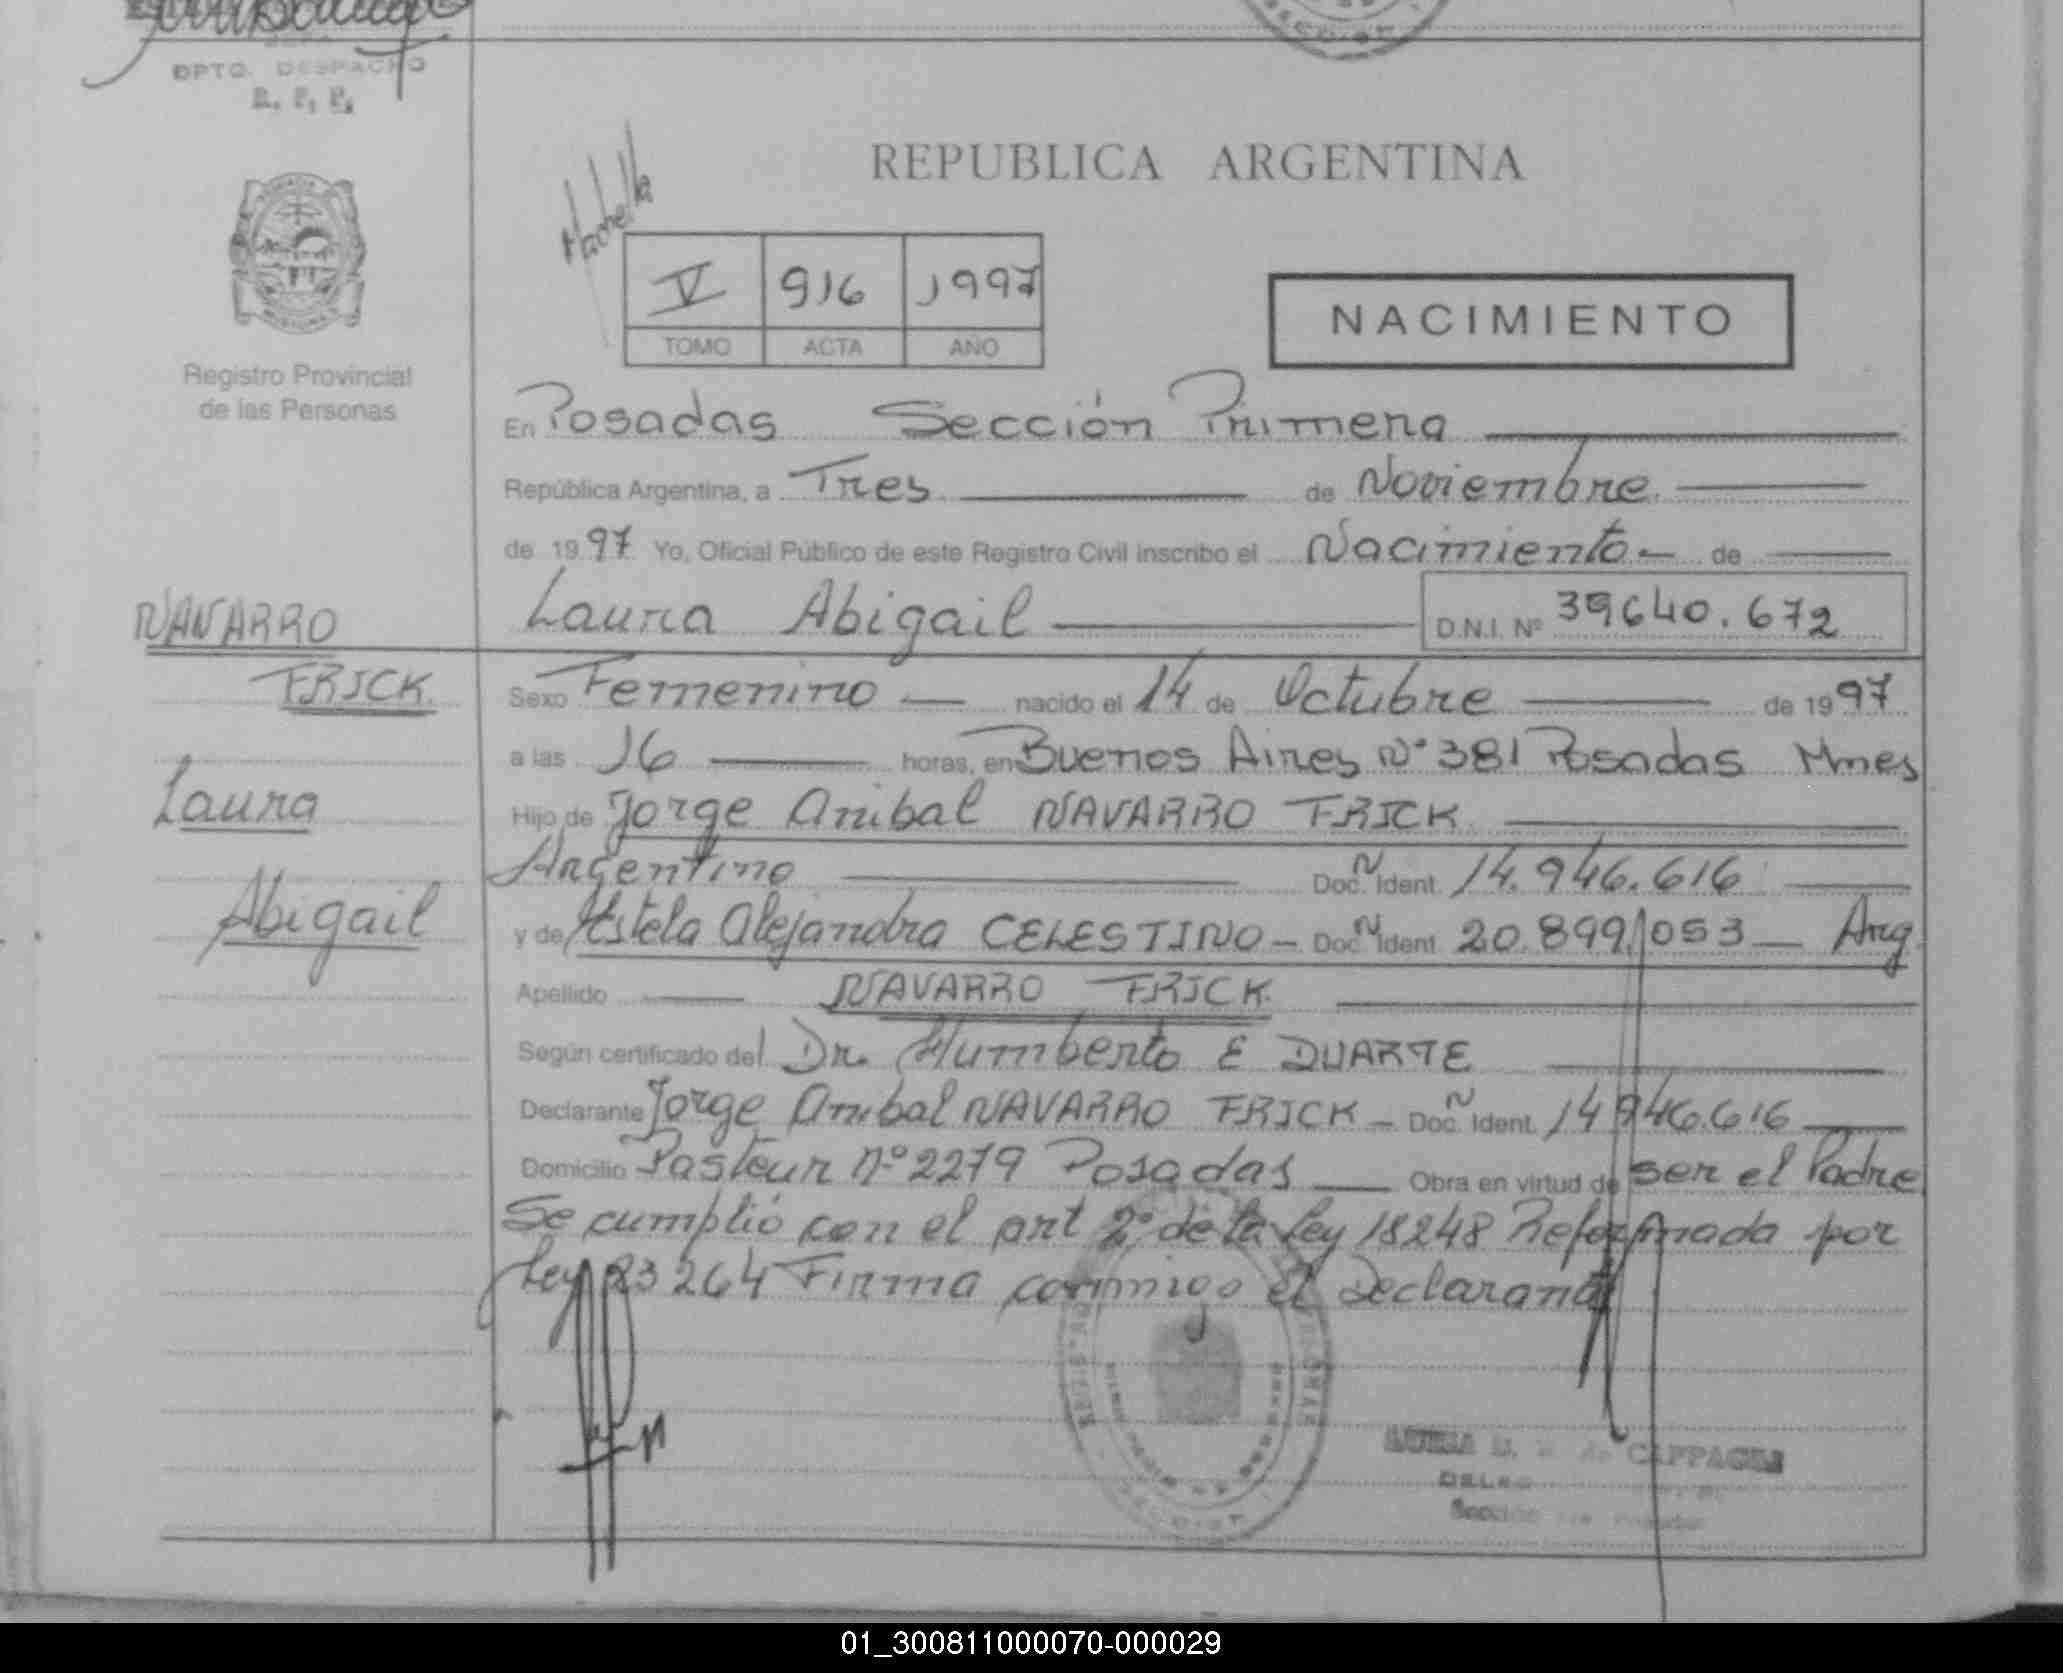 DPTO. DESPACHO
R. P. P.
REPUBLICA ARGENTINA
V 916 1997
TOMO ACTA AÑO
NACIMIENTO
MISIONES
Registro Provincial
de las Personas
En Posadas Sección Primera
República Argentina, a Tres de Noviembre
de 1997 Yo, Oficial Público de este Registro Civil inscribo el Nacimiento de
Laura Abigail D.N.I. Nº 39640.672
NAVARRO
FRICK
Laura
Abigail
Sexo Femenino nacido el 14 de Octubre de 1997
a las 16 horas, en Buenos Aires Nº 381 Posadas Mnes
Hijo de Jorge Anibal NAVARRO FRICK
Argentino Doc. Ident. 14.946.616
y de Estela Alejandra CELESTINO - Doc. Ident. 20.899.053 Arg.
Apellido NAVARRO FRICK
Según certificado del Dr. Humberto E DUARTE
Declarante Jorge Anibal NAVARRO FRICK - Doc. Ident. 14946.616
Domicilio Pasteur Nº 2279 Posadas Obra en virtud de ser el Padre
Se cumplió con el art 2º de la Ley 18248 Reformada por
Ley 23264 Firma conmigo el Declarante
01_300811000070-000029